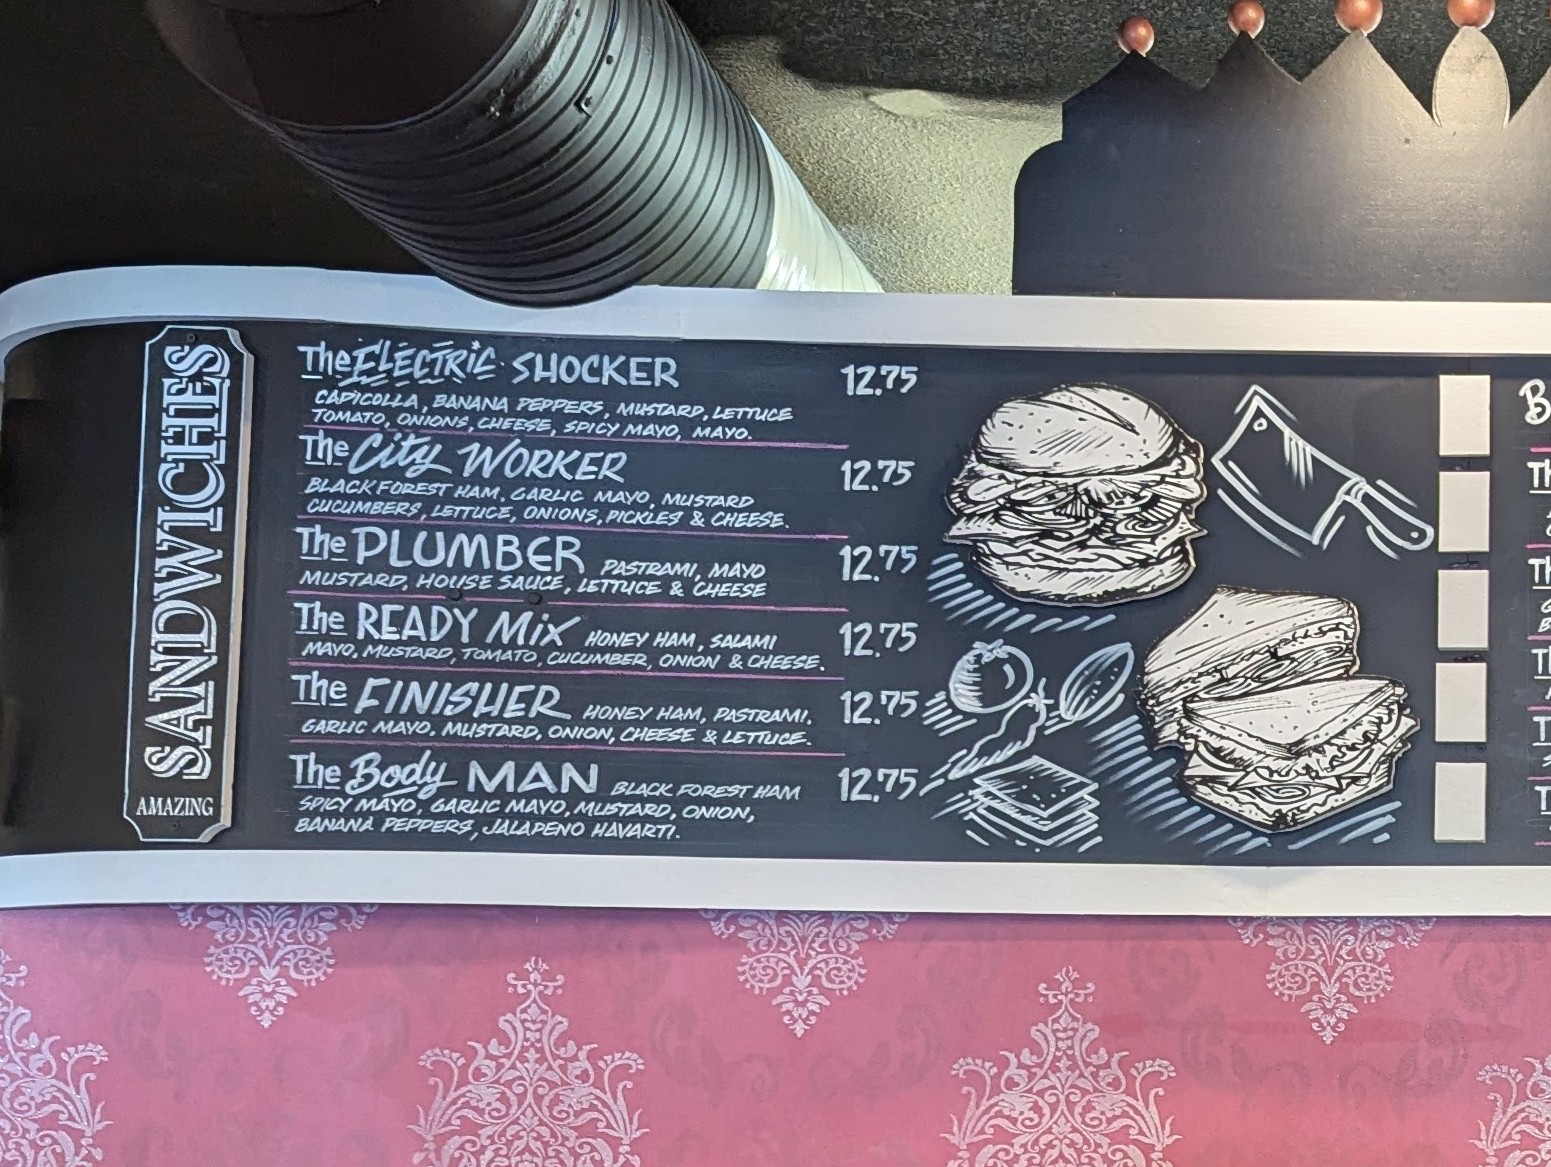 SANDWICHES
AMAZING
The ELECTRIC SHOCKER 12.75
CAPICOLLA, BANANA PEPPERS, MUSTARD, LETTUCE
TOMATO, ONIONS, CHEESE, SPICY MAYO, MAYO.
The City WORKER 12.75
BLACK FOREST HAM, GARLIC MAYO, MUSTARD
CUCUMBERS, LETTUCE, ONIONS, PICKLES & CHEESE.
The PLUMBER PASTRAMI, MAYO 12.75
MUSTARD, HOUSE SAUCE, LETTUCE & CHEESE
The READY MiX HONEY HAM, SALAMI 12.75
MAYO, MUSTARD, TOMATO, CUCUMBER, ONION & CHEESE.
The FINISHER HONEY HAM, PASTRAMI, 12.75
GARLIC MAYO, MUSTARD, ONION, CHEESE & LETTUCE.
The Body MAN BLACK FOREST HAM 12.75
SPICY MAYO, GARLIC MAYO, MUSTARD, ONION,
BANANA PEPPERS, JALAPENO HAVARTI.